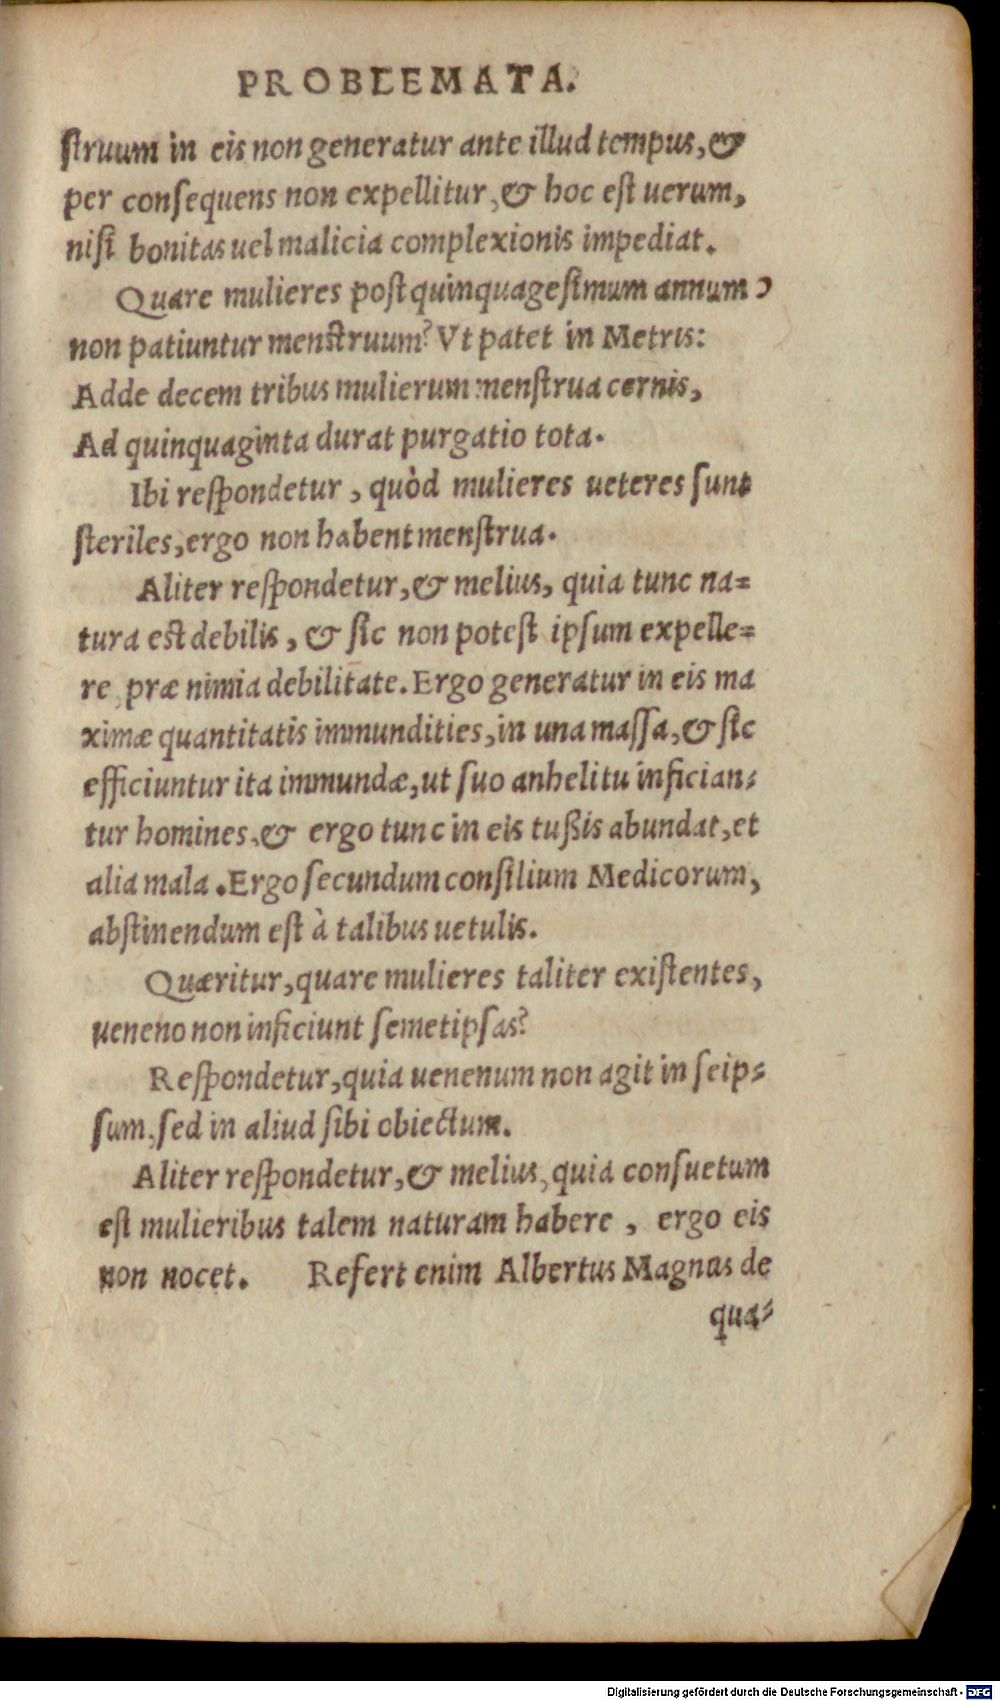 PROBLEMATA.
ſtruum in eis non generatur ante illud tempus, &
per conſequens non expellitur, & hoc eſt uerum,
niſi bonitas uel malicia complexionis impediat.
Quare mulieres poſt quinquageſimum annum
non patiuntur menſtruum? Vt patet in Metris:
Adde decem tribus mulierum menſtrua cernis,
Ad quinquaginta durat purgatio tota.
Ibi reſpondetur, quòd mulieres ueteres ſunt
ſteriles, ergo non habent menſtrua.
Aliter reſpondetur, & melius, quia tunc na=
tura eſt debilis, & ſic non poteſt ipſum expelle=
re præ nimia debilitate. Ergo generatur in eis ma
ximæ quantitatis immundities, in una maſſa, & ſic
efficiuntur ita immundæ, ut ſuo anhelitu infician=
tur homines, & ergo tunc in eis tußis abundat, et
alia mala. Ergo ſecundum conſilium Medicorum,
abſtinendum eſt à talibus uetulis.
Quæritur, quare mulieres taliter exiſtentes,
ueneno non inficiunt ſemetipſas?
Reſpondetur, quia uenenum non agit in ſeip=
ſum, ſed in aliud ſibi obiectum.
Aliter reſpondetur, & melius, quia conſuetum
eſt mulieribus talem naturam habere, ergo eis
non nocet. Refert enim Albertus Magnus de
qua=
Digitalisierung gefördert durch die Deutsche Forschungsgemeinschaft - DFG